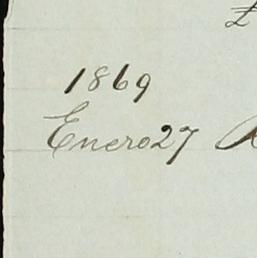 £
1869
Enero 27